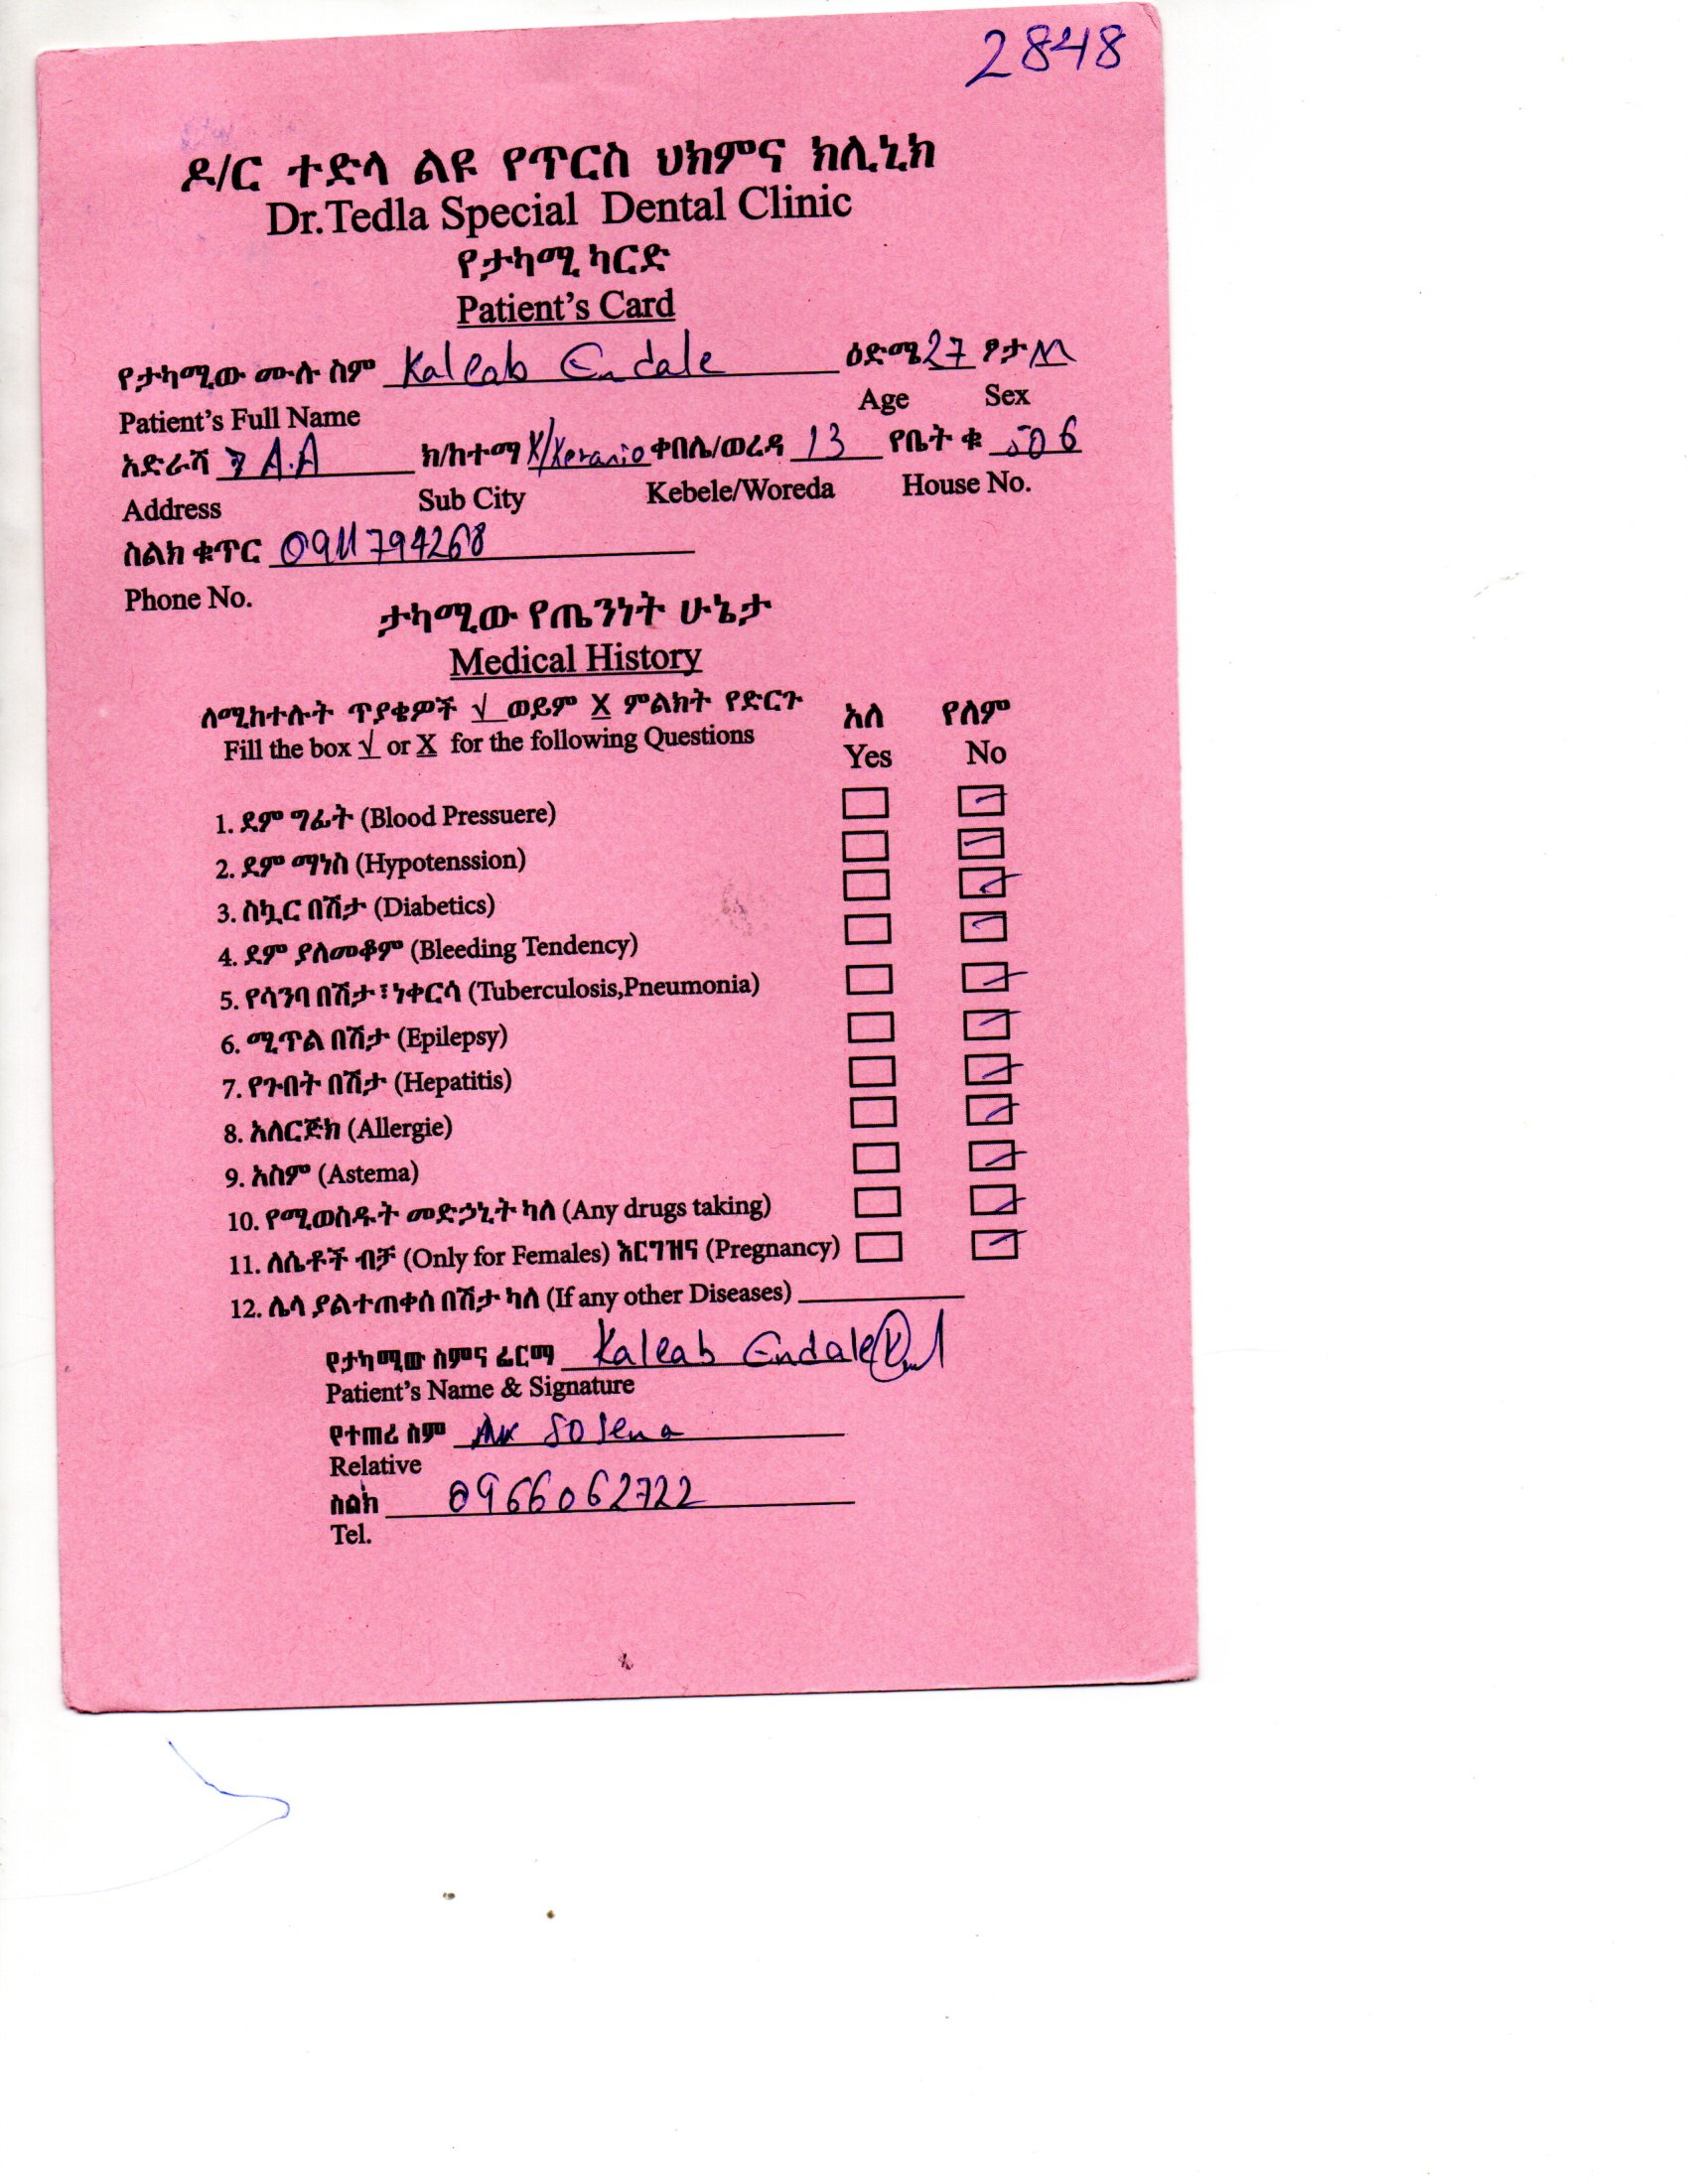 2848
ዶ/ር ተድላ ልዩ የጥርስ ህክምና ክሊኒክ
Dr.Tedla Special Dental Clinic
የታካሚ ካርድ
Patient's Card
የታካሚው ሙሉ ስም Kaleab Endale ዕድሜ 27 ፆታ M
Patient's Full Name Age Sex
አድራሻ A.A ክ/ከተማ K/Keranio ቀበሌ/ወረዳ 13 የቤት ቁ 506
Address Sub City Kebele/Woreda House No.
ስልክ ቁጥር 0911794268
Phone No.
ታካሚው የጤንነት ሁኔታ
Medical History
ለሚከተሉት ጥያቄዎች √ ወይም X ምልክት የድርጉ አለ የለም
Fill the box √ or X for the following Questions Yes No
1. ደም ግፊት (Blood Pressuere)
2. ደም ማነስ (Hypotenssion)
3. ስኳር በሽታ (Diabetics)
4. ደም ያለመቆም (Bleeding Tendency)
5. የሳንባ በሽታ፣ነቀርሳ (Tuberculosis,Pneumonia)
6. ሚጥል በሽታ (Epilepsy)
7. የጉበት በሽታ (Hepatitis)
8. አለርጅክ (Allergie)
9. አስም (Astema)
10. የሚወስዱት መድኃኒት ካለ (Any drugs taking)
11. ለሴቶች ብቻ (Only for Females) እርግዝና (Pregnancy)
12. ሌላ ያልተጠቀሰ በሽታ ካለ (If any other Diseases)
የታካሚው ስምና ፊርማ Kaleab Endale
Patient's Name & Signature
የተጠሪ ስም Solena
Relative
ስልክ 0966062722
Tel.